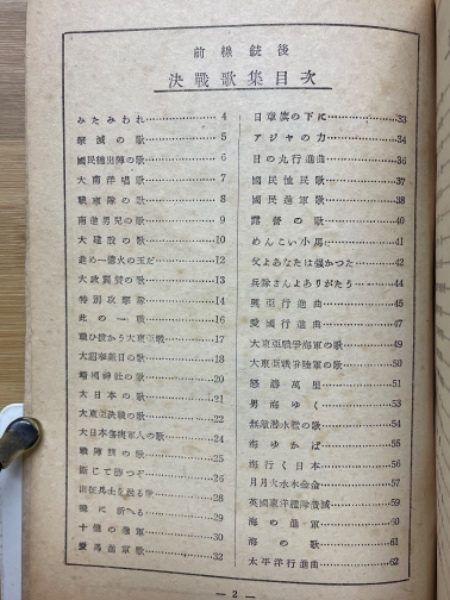 前線銃後
決戰歌集目次
みたみわれ……………4
撃滅の歌……………5
國民總出陣の歌……………6
大南洋唱歌……………7
戰車隊の歌……………8
南進男兒の歌……………9
大建設の歌……………10
進め一億火の玉だ……………12
大政翼賛の歌……………13
特別攻撃隊……………14
此の一戰……………16
戰ひ抜かう大東亞戰……………17
大詔奉戴日の歌……………18
靖國神社の歌……………20
大日本の歌……………21
大東亞決戰の歌……………22
大日本傷痍軍人の歌……………24
戰陣訓の歌……………25
斷じて勝つぞ……………26
出征兵士を送る歌……………28
曉に祈へる……………29
十億の進軍……………30
愛馬進軍歌……………32
日章旗の下に……………33
アジヤの力……………34
日の丸行進曲……………36
國民協和歌……………37
國民進軍歌……………38
露營の歌……………40
めんこい小馬……………41
父よあなたは强かつた……………42
兵隊さんよありがたう……………44
興亞行進曲……………45
愛國行進曲……………47
大東亞戰爭海軍の歌……………49
大東亞戰爭陸軍の歌……………50
怒濤萬里……………51
男海ゆく……………53
無敵潜水艦の歌……………54
海ゆかば……………55
海行く日本……………56
月月火水木金金……………57
英國東洋艦隊潰滅……………59
海の進軍……………60
海の歌……………61
太平洋行進曲……………62
— 2 —